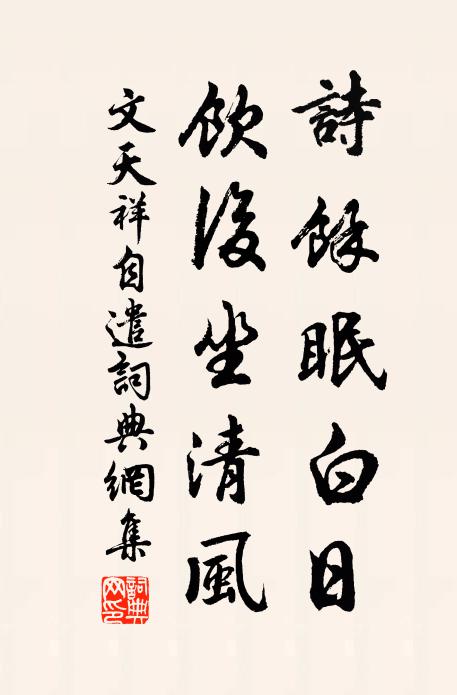 詩餘眠白日
飲後坐清風
文天祥自遣詞典網集
詞典網印